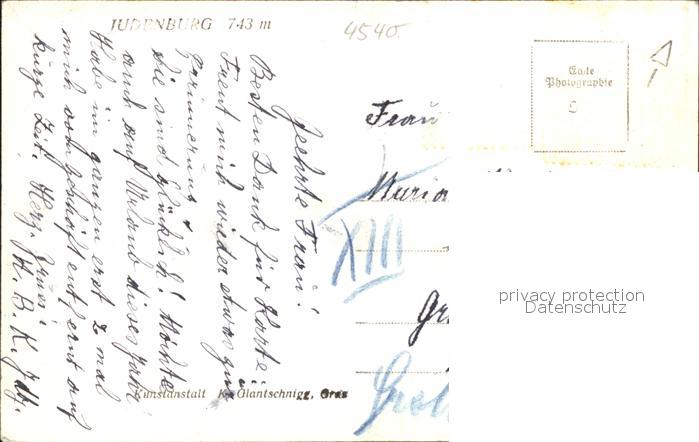 JUDENBURG 743 m
4540.
Carte
Photographie
Geehrte Frau!
Besten Dank für Karte.
Freut mich wieder etwas zur
Erinnerung
Sie sind glücklich! Möchte
auch auf Urlaub dieses Jahr
Habe im ganzen erst 2 mal
mich vom Geschäft entfernt auf
kurze Zeit. Herz. Grüsse!
Frau
Maria
XIII
Gr
Kunstanstalt K. Glantschnigg, Graz
privacy protection
Datenschutz